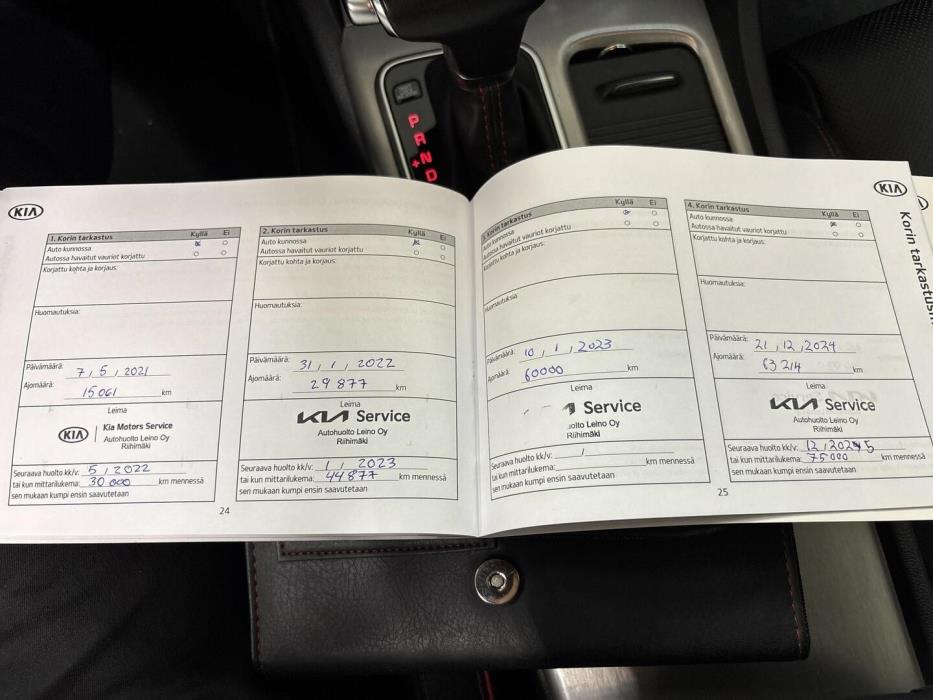 P
R
N
+
D
KIA
1. Korin tarkastus Kyllä Ei
Auto kunnossa
Autossa havaitut vauriot korjattu
Korjattu kohta ja korjaus:
Huomautuksia:
Päivämäärä: 7 , 5 , 2021
Ajomäärä: 15061 km
Leima
KIA Kia Motors Service
Autohuolto Leino Oy
Riihimäki
Seuraava huolto kk/v: 5 , 2022
tai kun mittarilukema: 30 000 km mennessä
sen mukaan kumpi ensin saavutetaan
2. Korin tarkastus Kyllä Ei
Auto kunnossa
Autossa havaitut vauriot korjattu
Korjattu kohta ja korjaus:
Huomautuksia:
Päivämäärä: 31 , 1 , 2022
Ajomäärä: 29877 km
Leima
KIA Service
Autohuolto Leino Oy
Riihimäki
Seuraava huolto kk/v: 1 , 2023
tai kun mittarilukema: 44877 km mennessä
sen mukaan kumpi ensin saavutetaan
24
3. Korin tarkastus Kyllä Ei
Auto kunnossa
Autossa havaitut vauriot korjattu
Korjattu kohta ja korjaus:
Huomautuksia
Päivämäärä: 10 , 1 , 2023
Ajomäärä: 60000 km
Leima
Service
uolto Leino Oy
Riihimäki
Seuraava huolto kk/v: /
tai kun mittarilukema: km mennessä
sen mukaan kumpi ensin saavutetaan
KIA
4. Korin tarkastus Kyllä Ei
Auto kunnossa
Autossa havaitut vauriot korjattu
Korjattu kohta ja korjaus:
Huomautuksia:
Päivämäärä: 21 , 12 , 2024
Ajomäärä: 63214 km
Leima
KIA Service
Autohuolto Leino Oy
Riihimäki
Seuraava huolto kk/v: 12 , 2025
tai kun mittarilukema: 75000 km mennessä
sen mukaan kumpi ensin saavutetaan
25
Korin